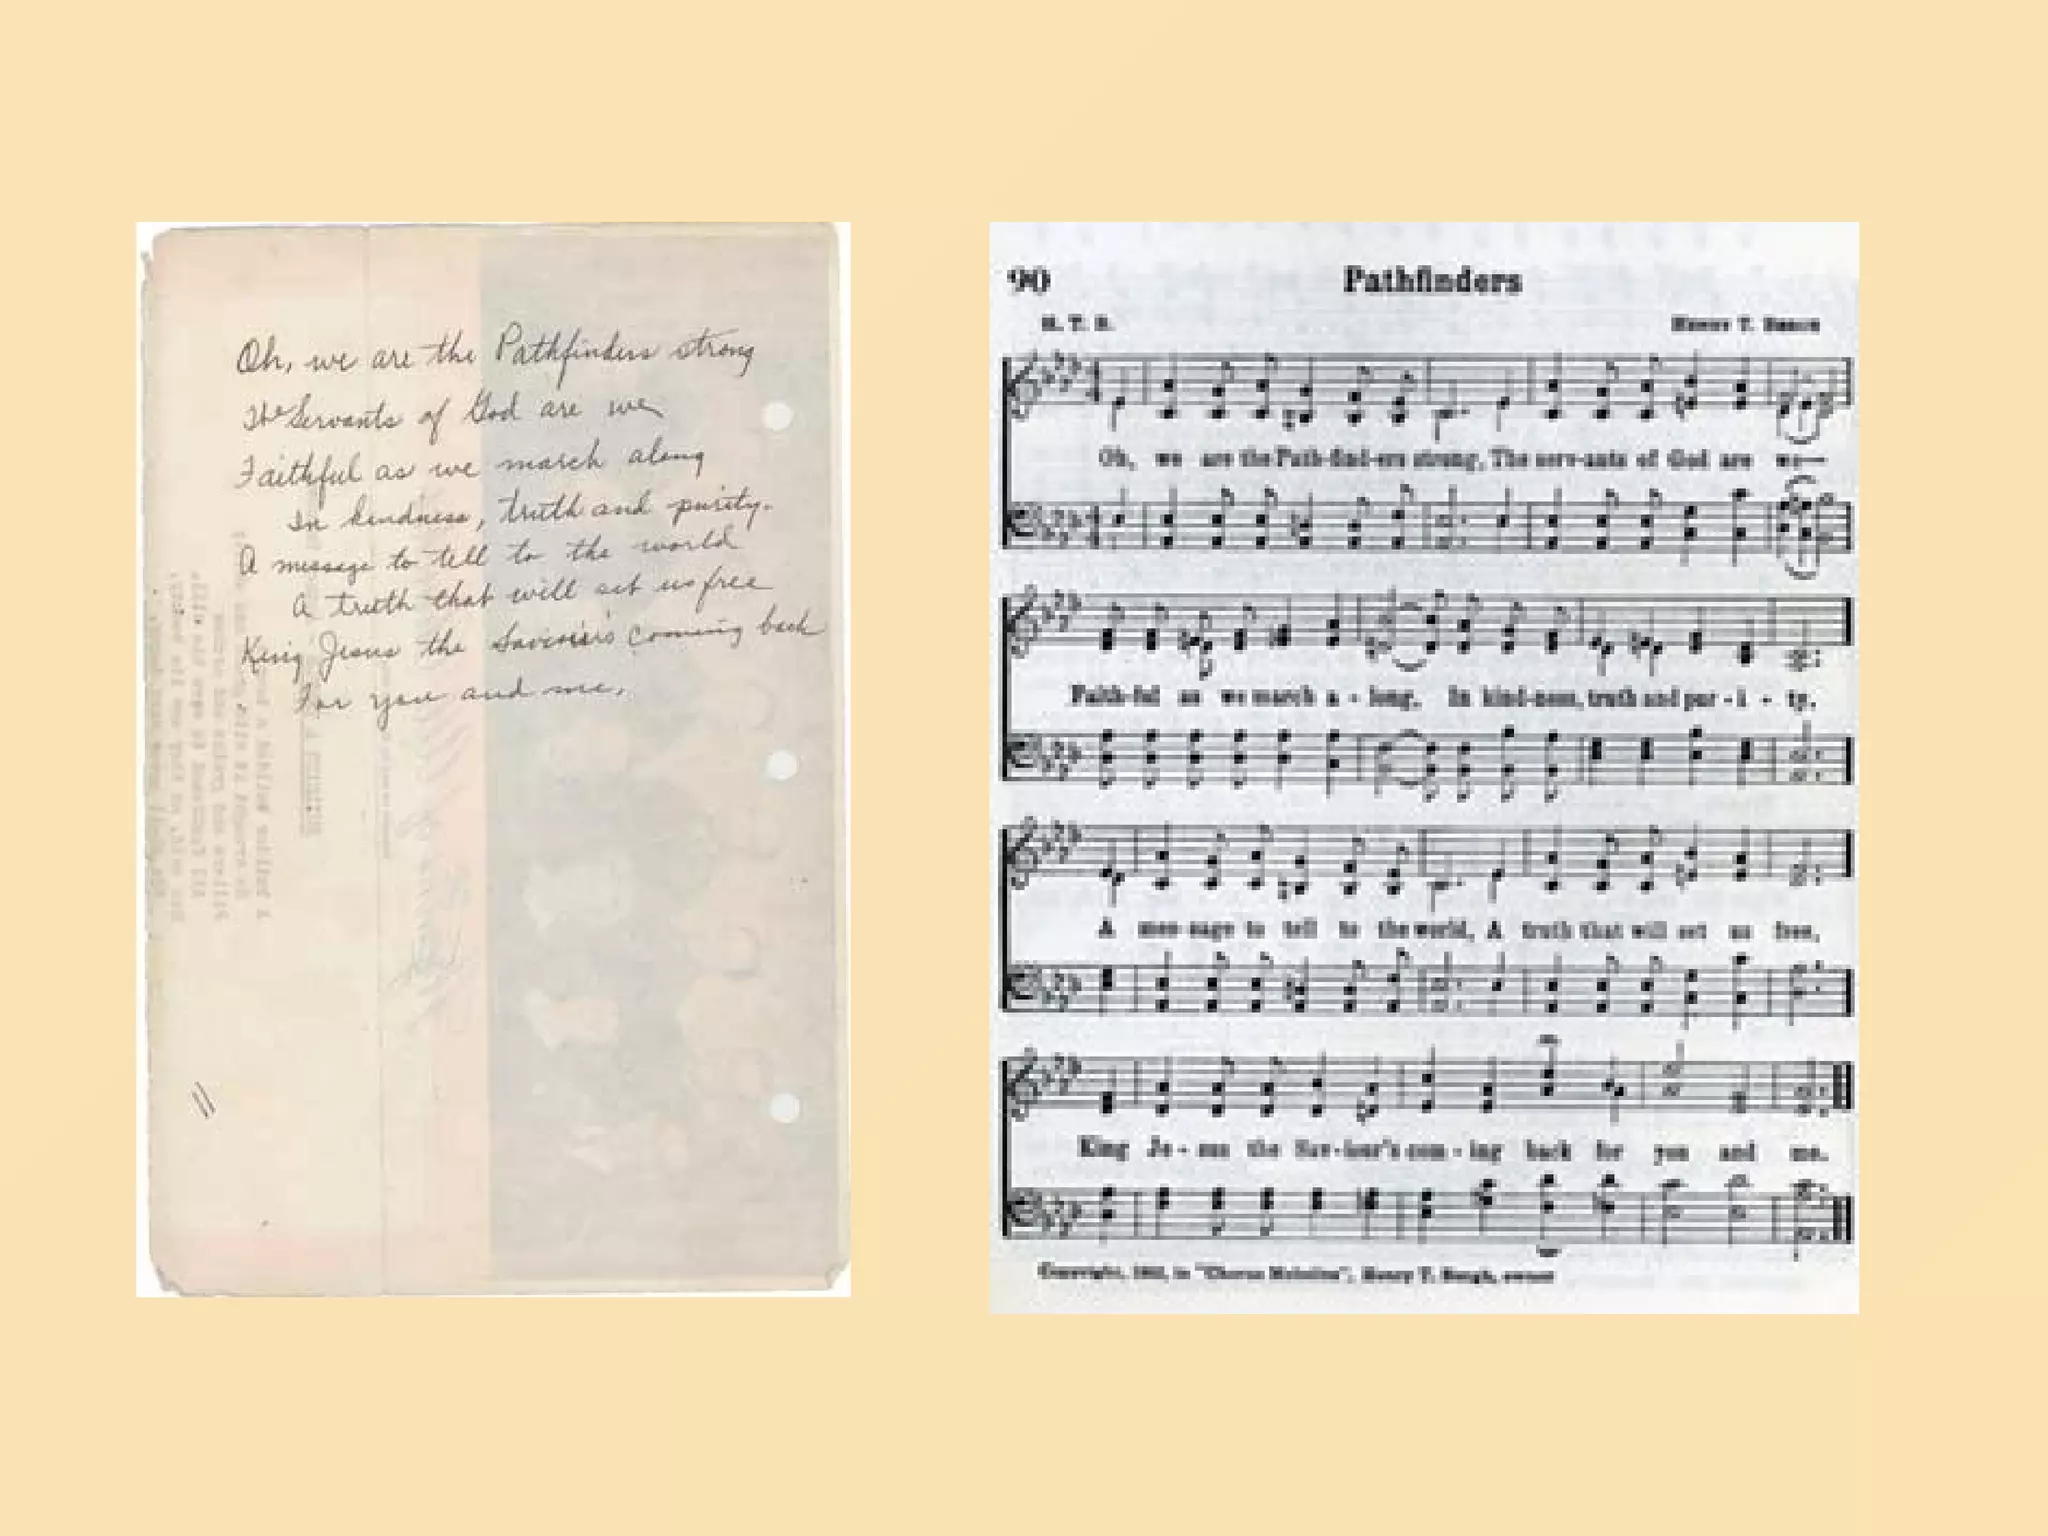 Oh, we are the Pathfinders strong
The Servants of God are we
Faithful as we march along
In kindness, truth and purity.
A message to tell to the world
A truth that will set us free
King Jesus the Saviour's coming back
For you and me.
90 Pathfinders
H. T. B. Henry T. Bergh
Oh, we are the Path-find-ers strong, The serv-ants of God are we
Faith-ful as we march a - long, In kind-ness, truth and pur - i - ty.
A mes-sage to tell to the world, A truth that will set us free,
King Je - sus the Sav-iour's com - ing back for you and me.
Copyright, 1962, in "Chorus Melodies", Henry T. Bergh, owner